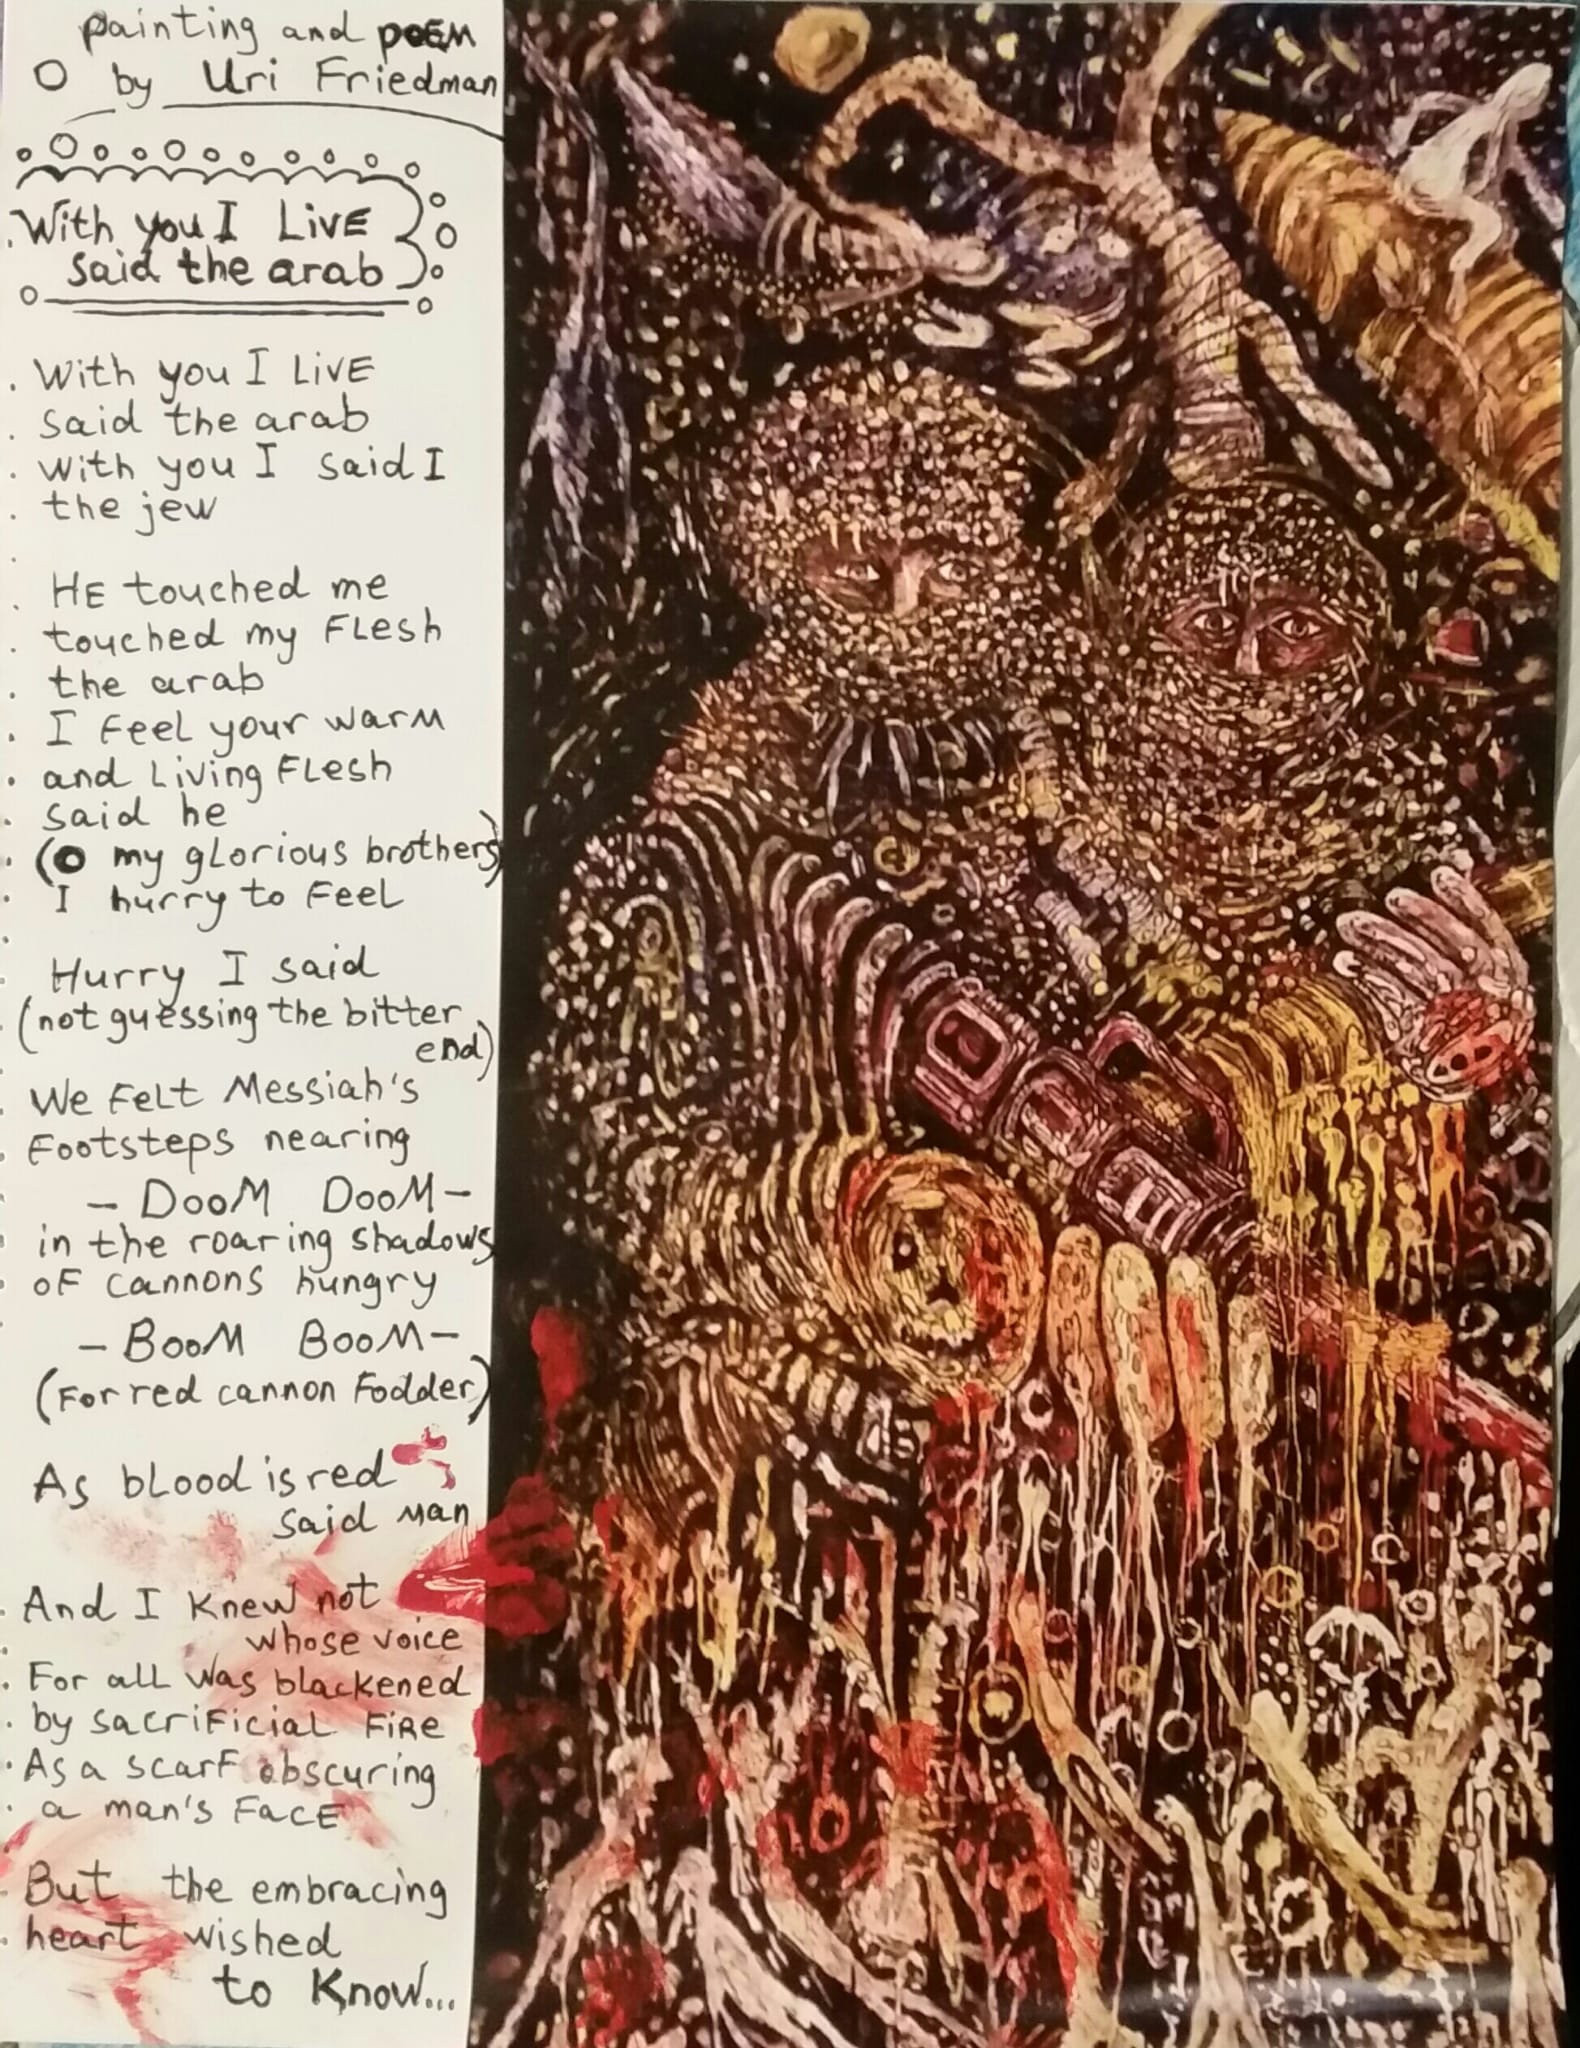 painting and poEM
by Uri Friedman
With you I LivE
said the arab
With you I LivE
said the arab
with you I said I
the jew
HE touched me
touched my FLesh
the arab
I Feel your warM
and Living FLesh
said he
(O my glorious brothers)
I hurry to Feel
Hurry I said
(not guessing the bitter
end)
We FeLt Messiah's
Footsteps nearing
- DooM DooM -
in the roaring shadows
oF cannons hungry
- BooM BooM -
(For red cannon Fodder)
As bLood is red
said Man
And I Knew not
whose voice
For all was blackened
by sacriFiciaL FiRe
As a scarF obscuring
a man's FacE
But the embracing
heart wished
to Know...